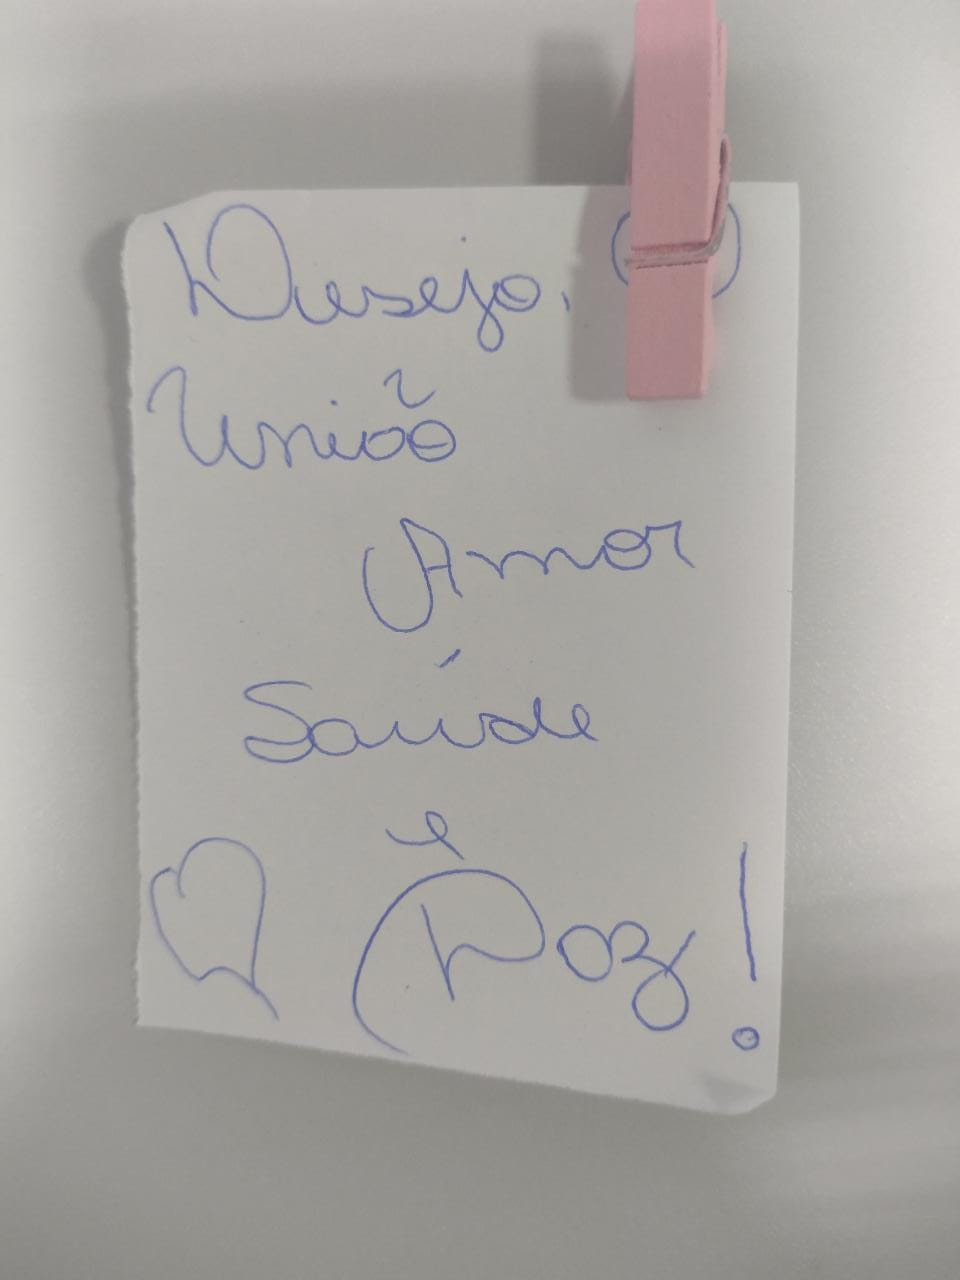 Desejo,
União
Amor
Saúde
e
Paz!